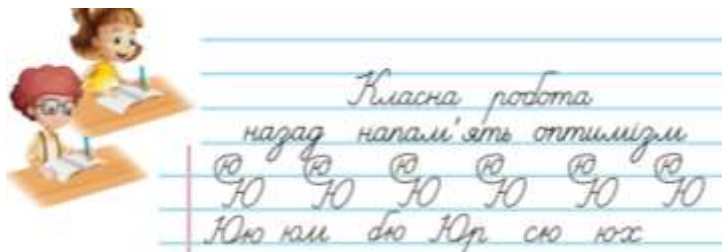 Класна робота
назад напам'ять оптимізм
ю ю ю ю ю ю
Ю Ю Ю Ю Ю Ю
Юю юм бю Юр сю юх